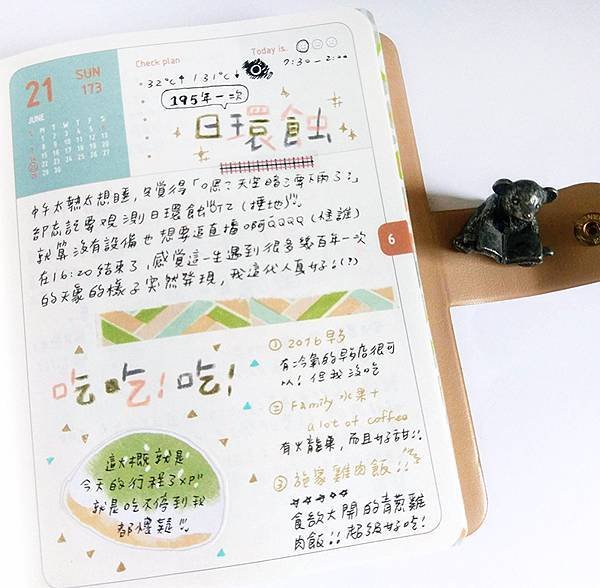 21
SUN
173
JUNE
Check plan
Today is.
7:30-2:00
32℃↑/31℃↓
195年一次
日環蝕
中午太熱太想睡,只覺得「嗯?天空暗了要下雨了?」
卻忘記要觀測日環蝕 OTZ (捶地)!!
就算沒有設備也想要追直播啊啊QQQQ(怪誰)
在16:20結束了,感覺這一生遇到很多幾百年一次
的天象的樣子突然發現,我這代人真好!(?)
6
吃吃!吃!
① 2016早午
有冷氣的早午店很可
以!但我沒吃
② Family 水果+
a lot of coffee
有火龍果,而且好甜!!
③ 施家雞肉飯!!
食欲大開的青蔥雞
肉飯!!超級好吃!
這大概就是
今天的行程了XP"
就是吃不停到我
都傻疑!!